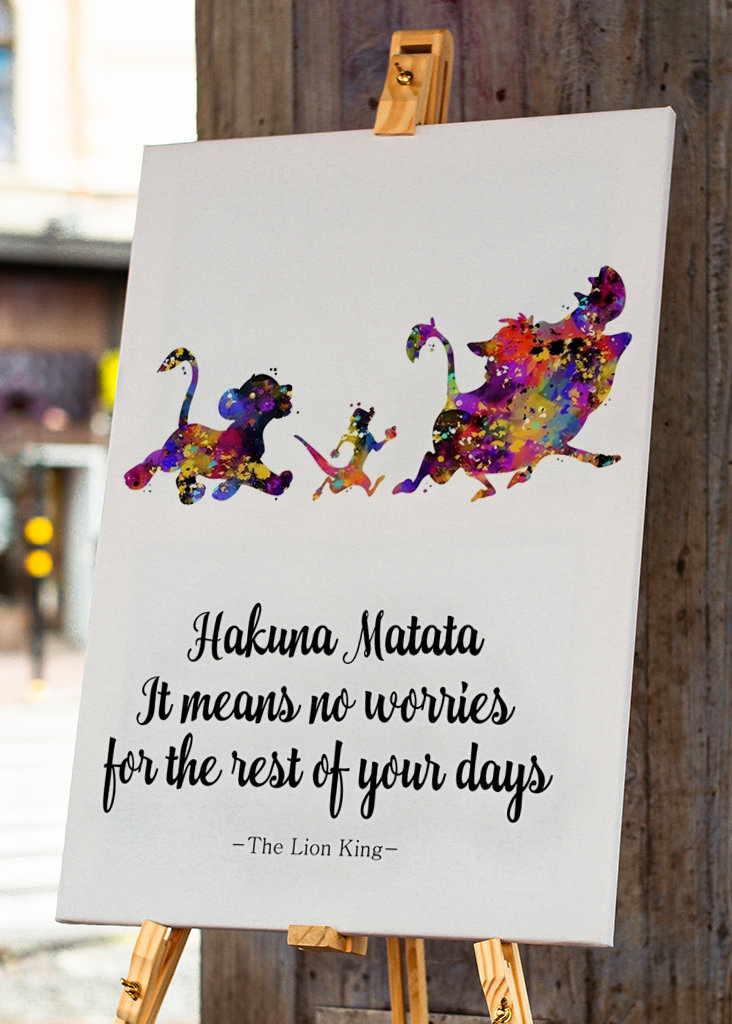 Hakuna Matata
It means no worries
for the rest of your days
-The Lion King-